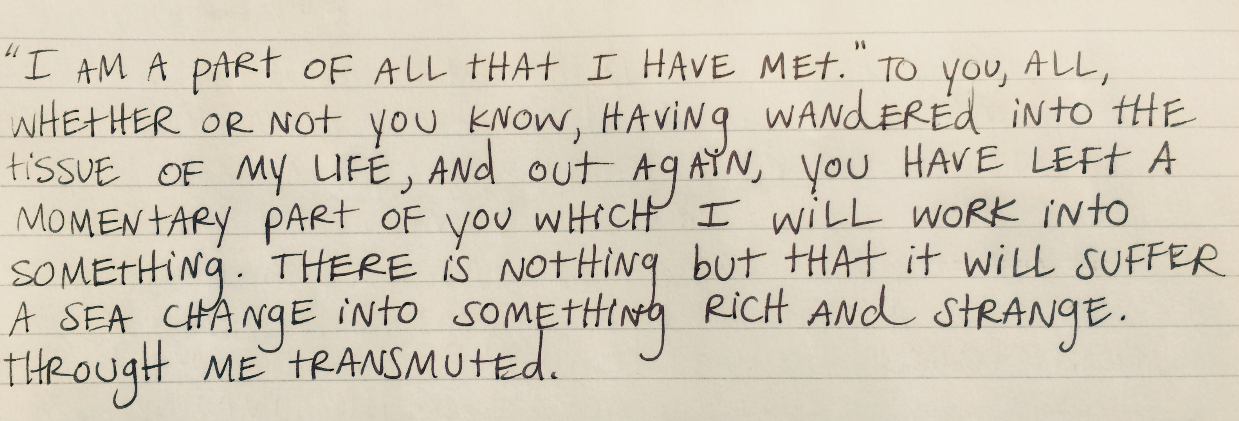 "I AM A PART OF ALL THAT I HAVE MET." TO YOU, ALL,
WHETHER OR NOT YOU KNOW, HAVING WANDERED INTO THE
TISSUE OF MY LIFE, AND OUT AGAIN, YOU HAVE LEFT A
MOMENTARY PART OF YOU WHICH I WILL WORK INTO
SOMETHING. THERE IS NOTHING BUT THAT IT WILL SUFFER
A SEA CHANGE INTO SOMETHING RICH AND STRANGE.
THROUGH ME TRANSMUTED.